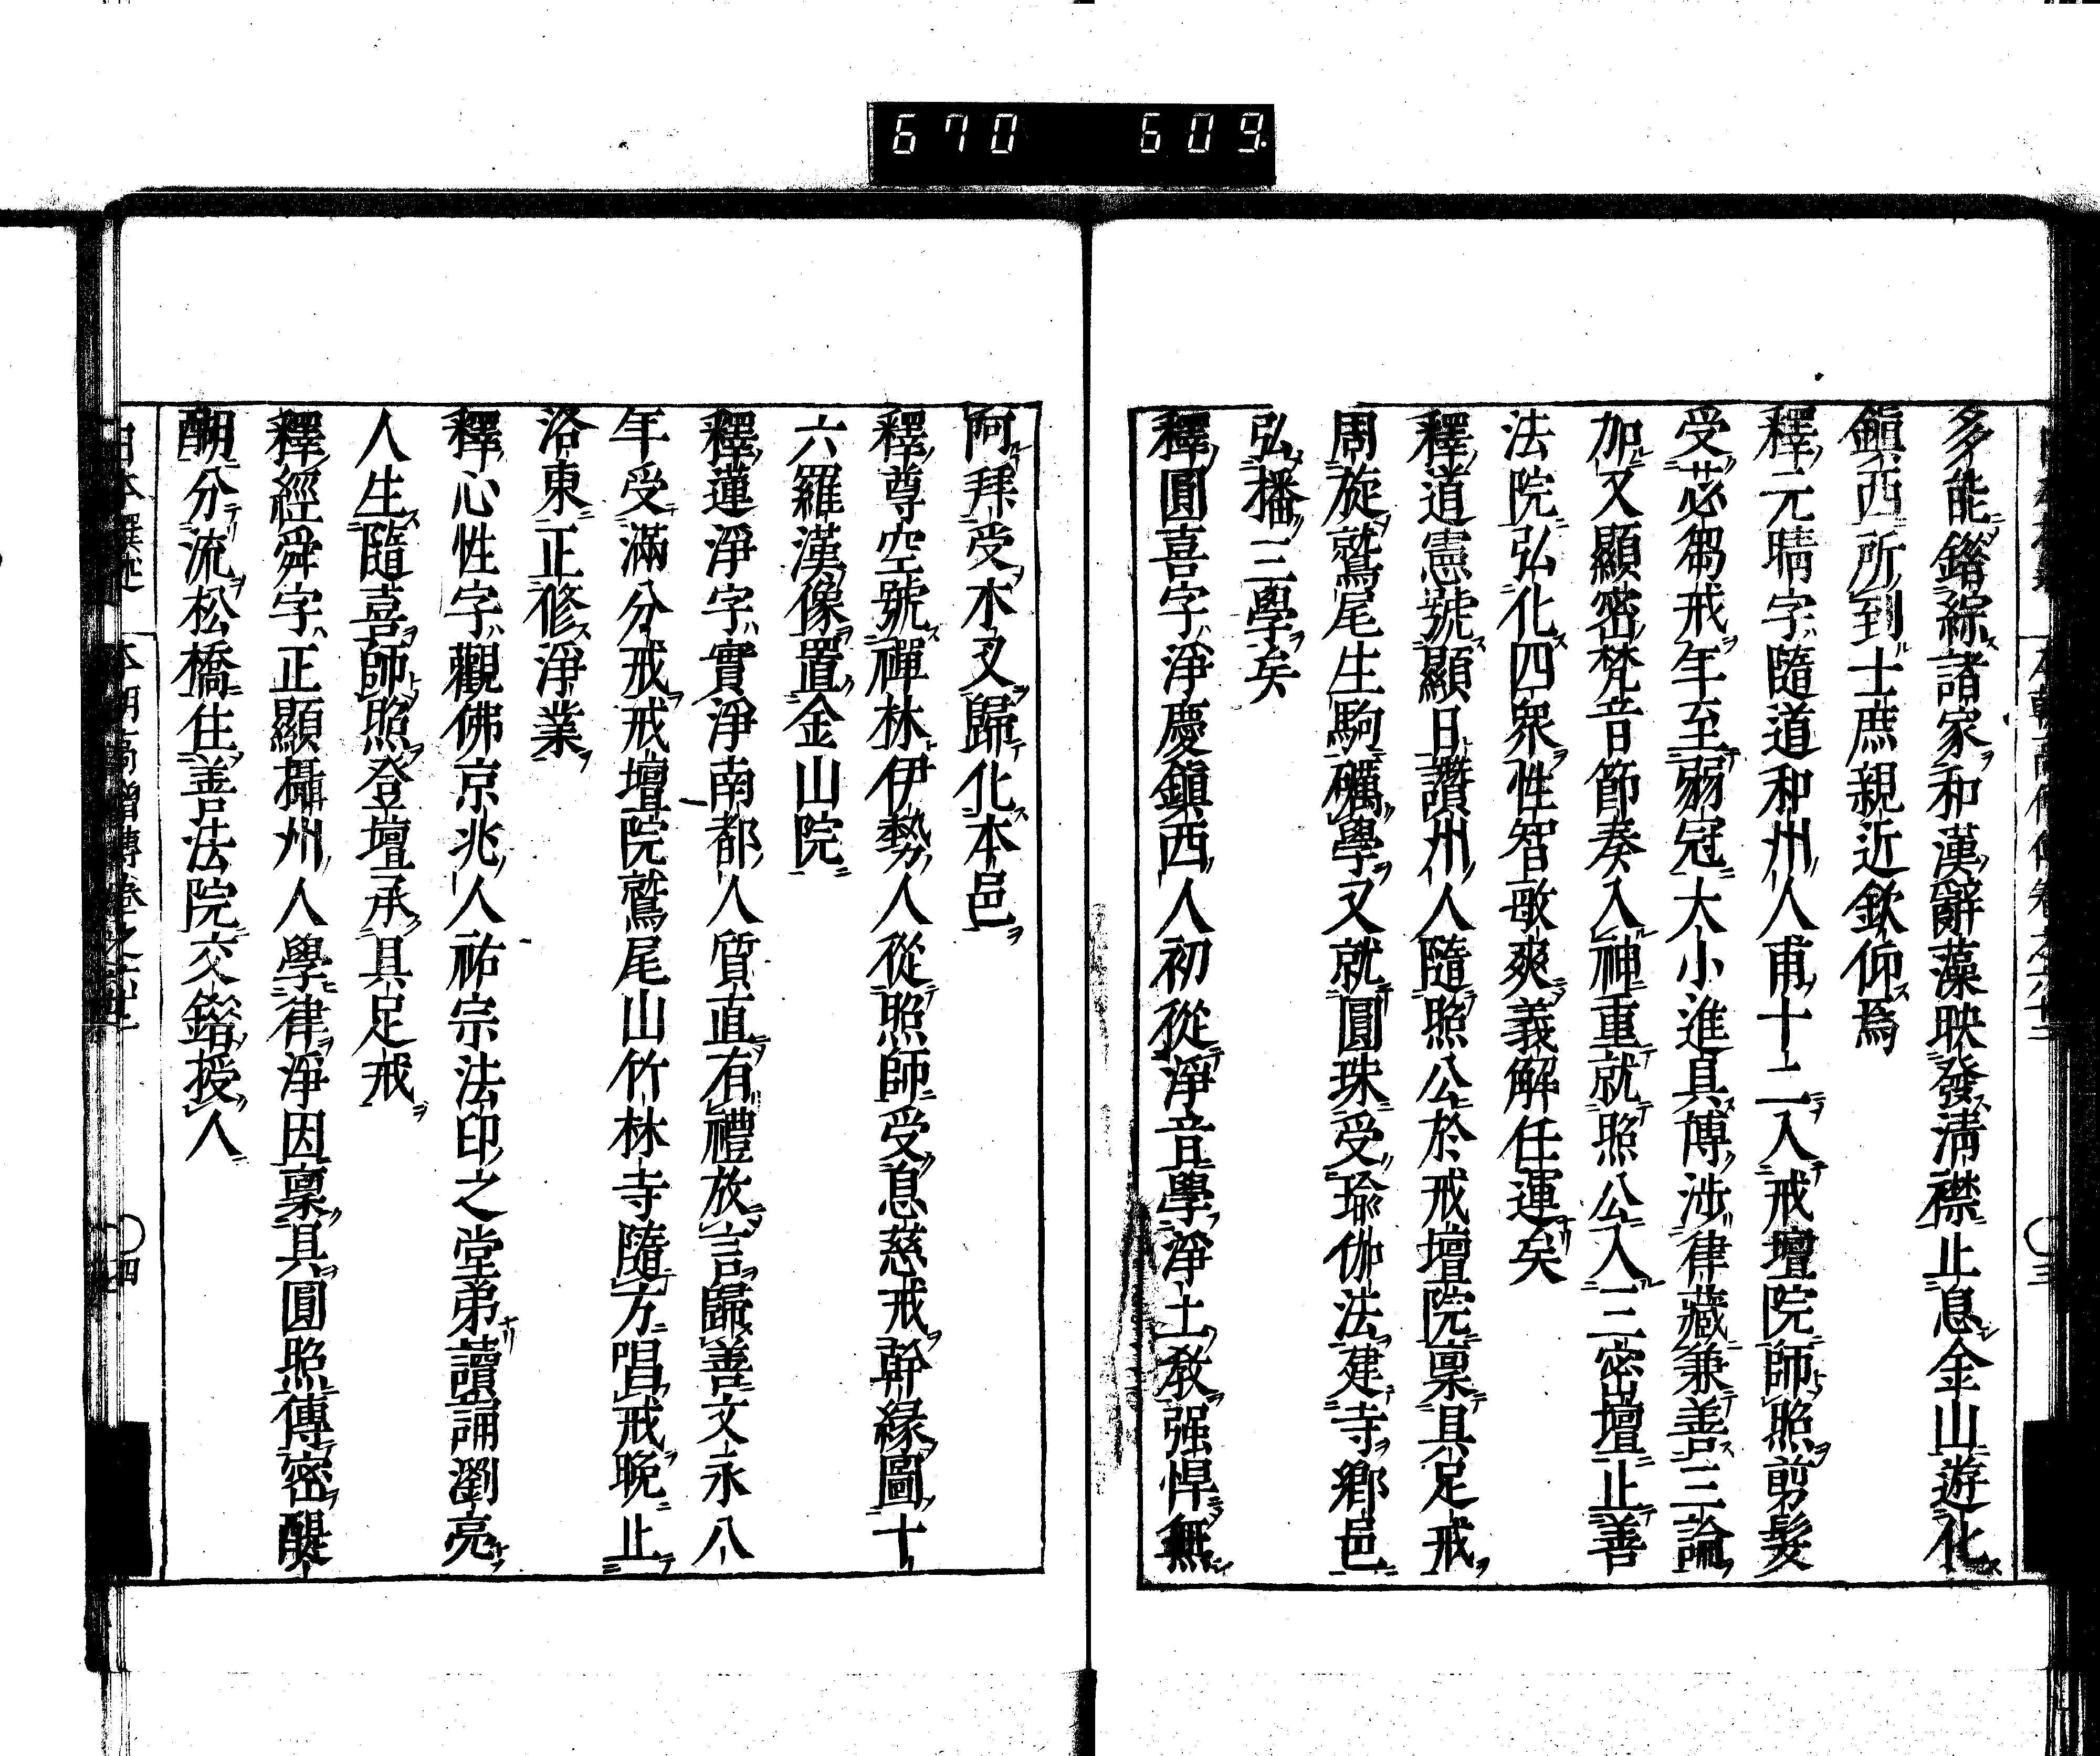 670 609
多能錯綜諸家和漢辭藻映發淸襟止息金山遊化
鎭西所到士庶親近欽仰焉
釋元晴字隨道和州人甫十二入戒壇院師照剪髮
受苾芻戒年至弱冠大小進具博涉律藏兼善三論
加又顯密梵音節奏入神重就照公入三密壇止善
法院弘化四衆性智敏爽義解任運矣
釋道憲號顯日讚州人隨照公於戒壇院稟具足戒
周旋鷲尾生駒礪學又就圓珠受瑜伽法建寺鄉邑
弘播三學矣
釋圓喜字淨慶鎭西人初從淨音學淨土敎强悍無
阿拜受木叉歸化本邑
釋尊空號禪林伊勢人從照師受息慈戒幹緣圖十
六羅漢像置金山院
釋蓮淨字實淨南都人質直有禮放言歸善文永八
年受滿分戒戒壇院鷲尾山竹林寺隨方唱戒晚止
洛東正修淨業
釋心性字觀佛京兆人祐宗法印之堂弟讀誦瀏亮
人生隨喜師照登壇承具足戒
釋經舜字正顯攝州人學律淨因稟具圓照傳密醍
醐分流松橋住善法院交錯授人
本朝高僧傳卷之六十二 四